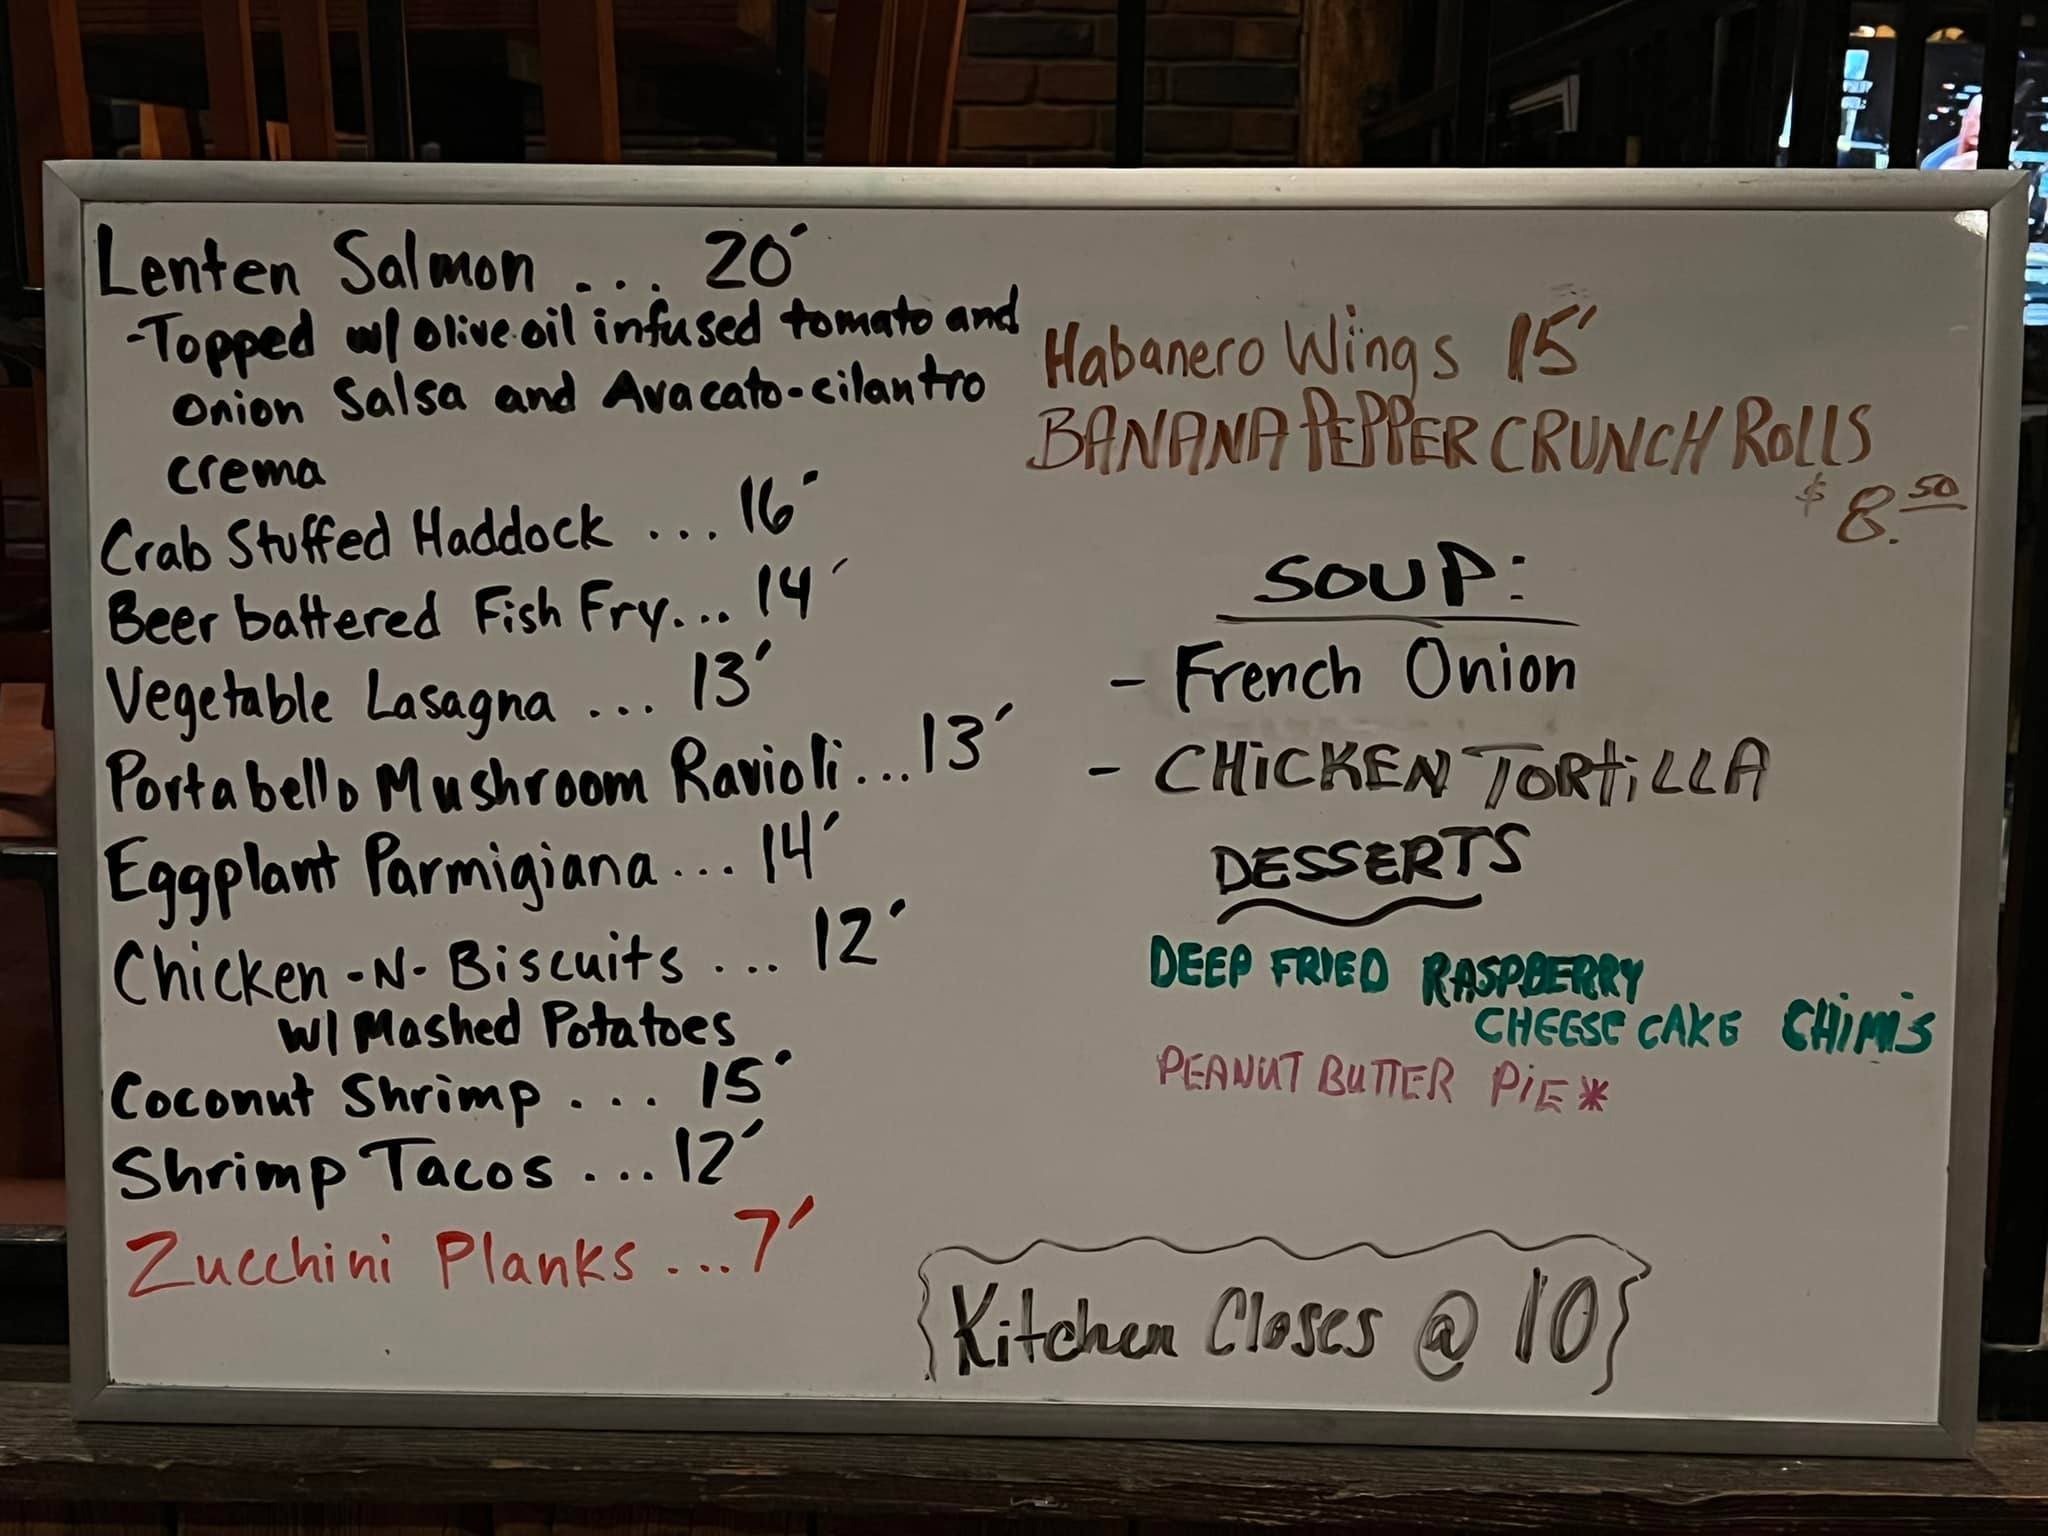 Lenten Salmon ... 20'
-Topped w/ olive oil infused tomato and
onion Salsa and Avacato-cilantro
crema
Crab Stuffed Haddock ... 16'
Beer battered Fish Fry... 14'
Vegetable Lasagna ... 13'
Portabello Mushroom Ravioli...13'
Eggplant Parmigiana... 14'
Chicken-N-Biscuits ... 12'
w/ Mashed Potatoes
Coconut Shrimp ... 15'
Shrimp Tacos ...12'
Zucchini Planks ...7'
Habanero Wings 15'
BANANA PEPPER CRUNCH ROLLS
$8.50
SOUP:
- French Onion
- CHiCKEN TORTiLLA
DESSERTS
DEEP FRIED RASPBERRY
CHEESE CAKE CHiMiS
PEANUT BUTTER PiE*
Kitchen Closes @ 10